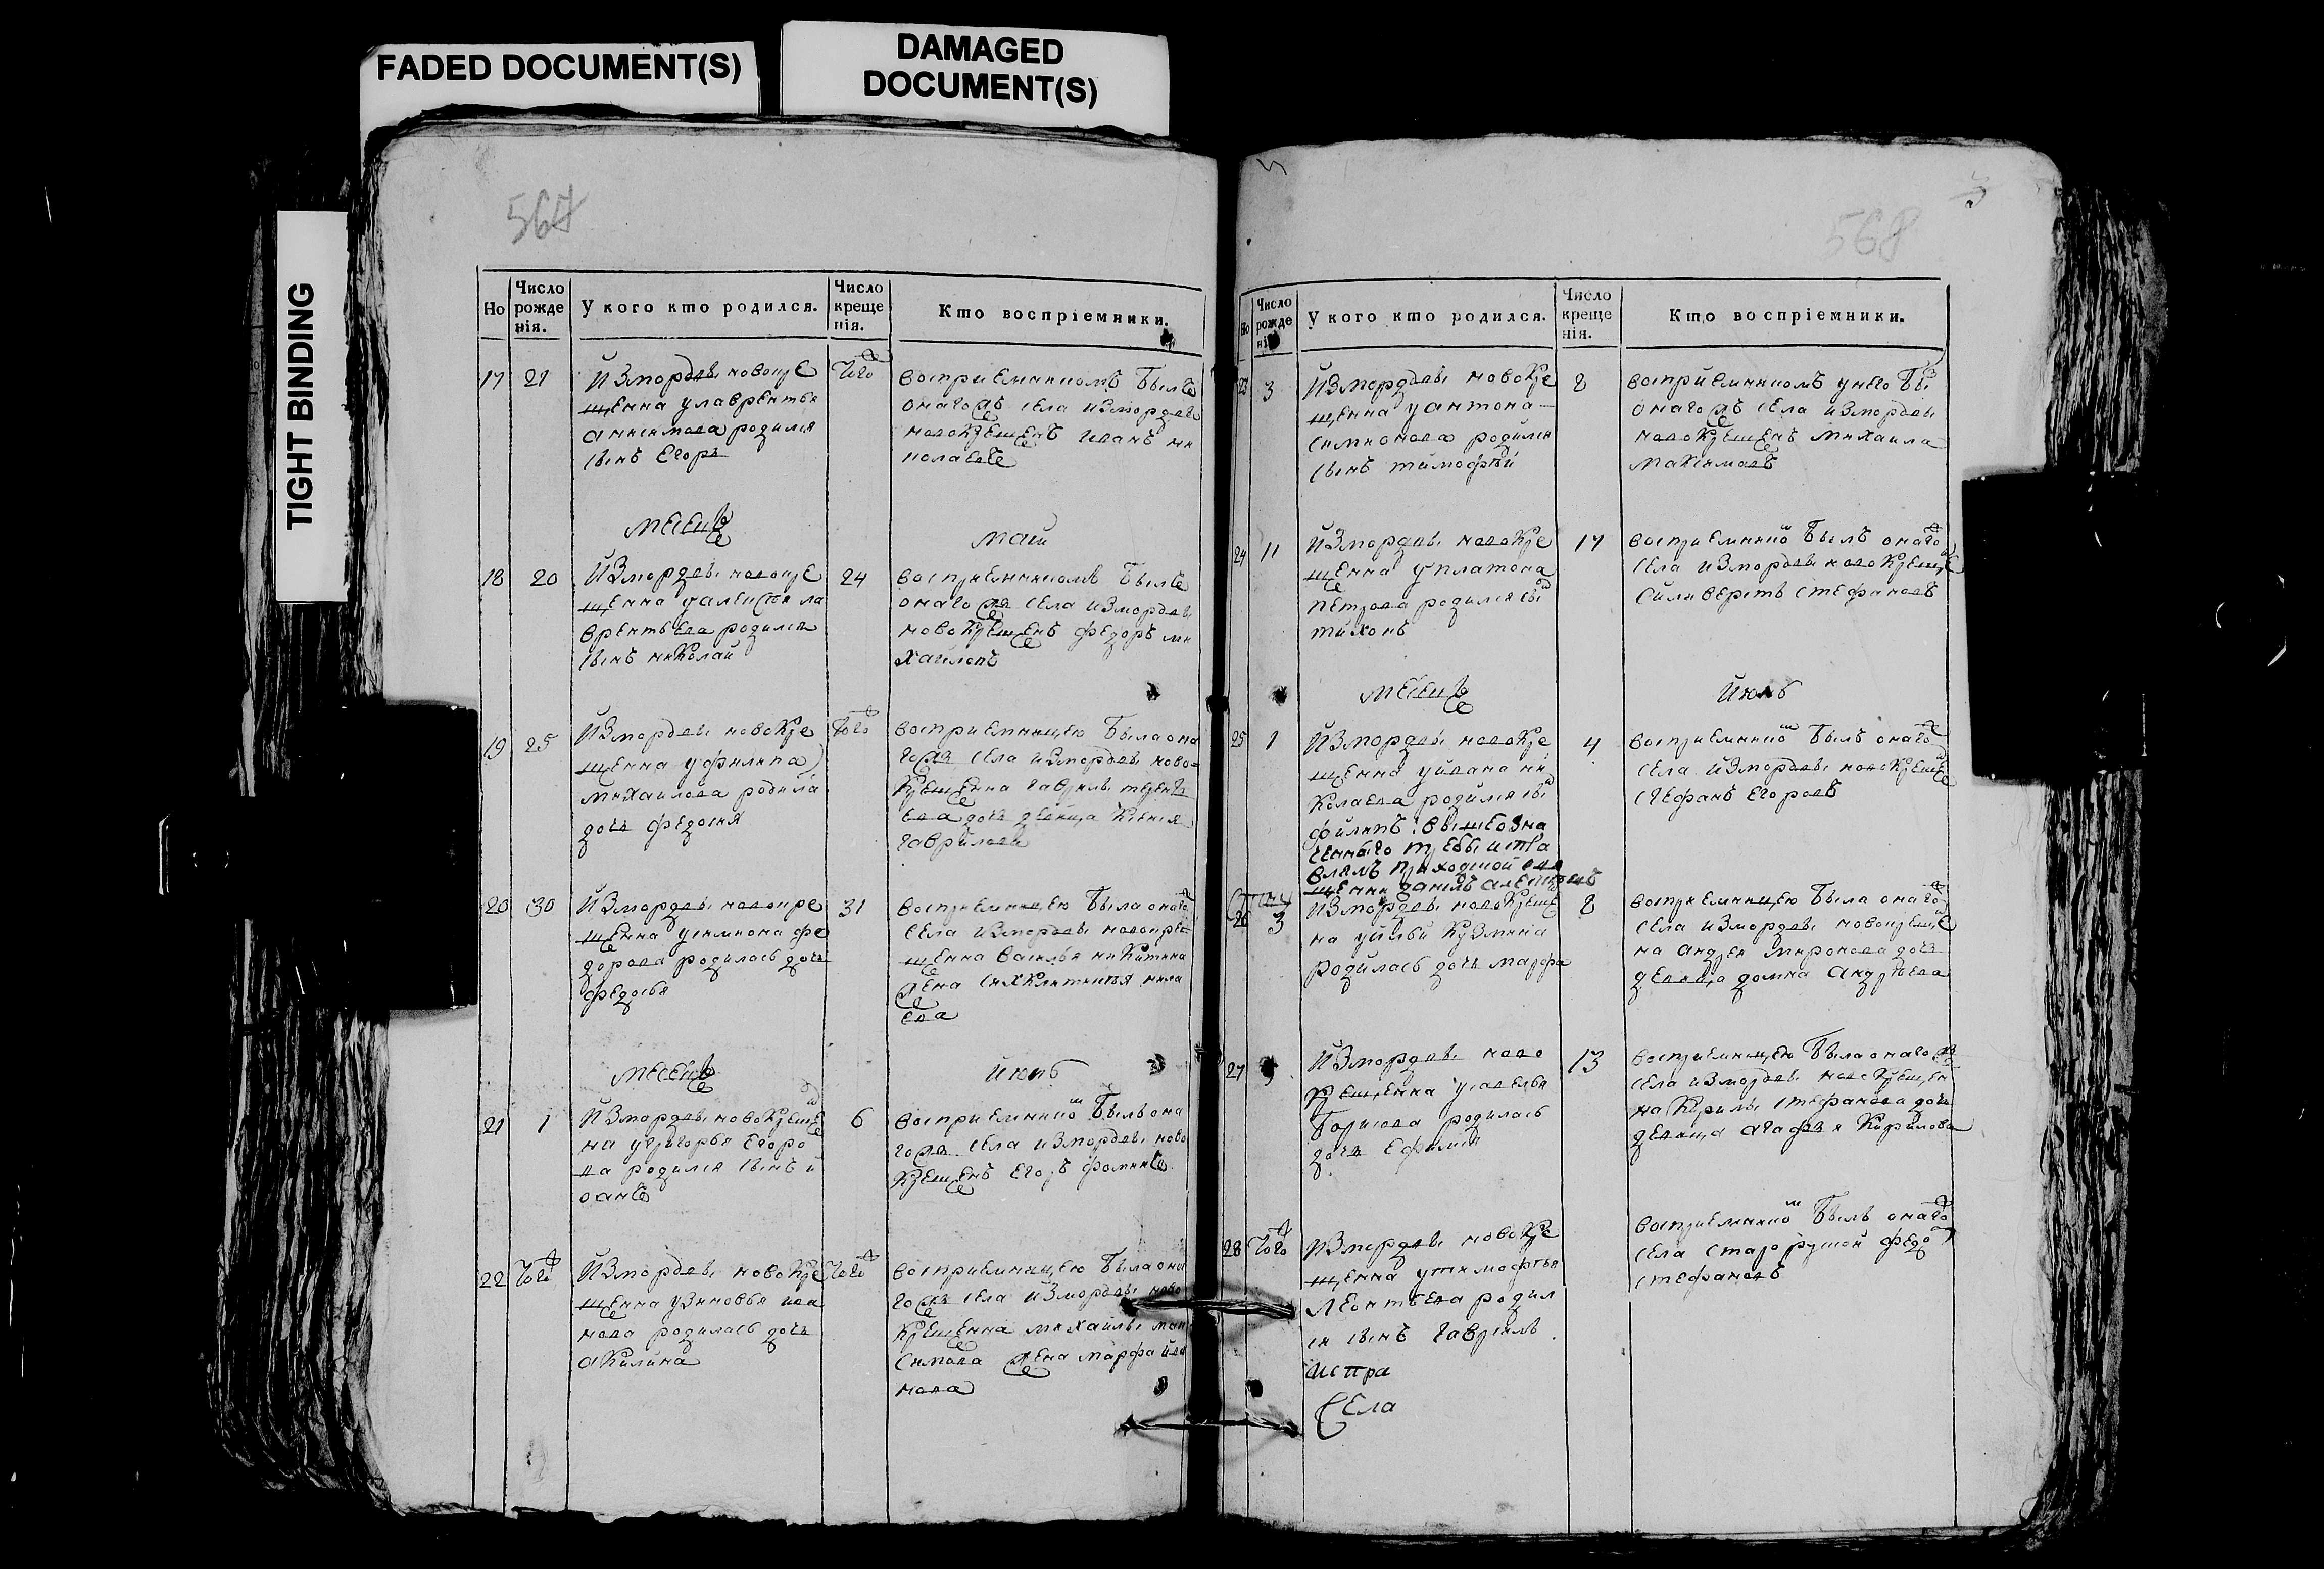 FADED DOCUMENT(S)
DAMAGED
DOCUMENT(S)
TIGHT BINDING
567
Но
Число рожденія.
У кого кто родился.
Число крещенія.
Кто воспріемники.
17 21
Измордвы новокре
щенна улаврентья
анисимова родился
сынъ егоръ
того
восприемникомъ былъ
оногожъ села измордвы
новокрещенъ иванъ ни
колаевъ
месецъ май
18 20
Измордвы новокре
щенна уалексѣя ла
врентьева родился
сынъ николай
24
восприемникомъ былъ
оногожъ села измордвы
новокрещенъ федоръ ми
хайловъ
19 25
Измордвы новокре
щенна уфилипа
михайлова родила
дочь федосия
того
восприемницею была она
гожъ села измордвы ново=
крещенна гаврилы
ева дочь девица ксения
гаврилова
20 30
Измордвы новокре
щенна усимиона фе
дорова родилась дочь
федосья
31
восприемницею была онаго
села измордвы новокре
щенна василья никитина
жена
ева
месецъ июнь
21 1
Измордвы новокреще
на угригорья егоро
ва родился сынъ и
оанъ
6
восприемнико былъ она
гожъ села измордвы ново
крещенъ егоръ фоминъ
22 того
Измордвы новокре
щенна узиновья ива
нова родилась дочь
акилина
того
восприемницею была она
гожъ села измордвы ново
крещенна михайлы мак
симова жена марфа ива
нова
568
Но
Число рожденія.
У кого кто родился.
Число крещенія.
Кто воспріемники.
23 3
Измордвы новокре
щенна уантона
симионова родился
сынъ тимофѣй
8
восприемникомъ унего бы
оногожъ села измордвы
новокрещенъ михаила
максимовъ
24 11
Измордвы новокре
щенна уплатона
петрова родился сы
тихонъ
17
восприемнико былъ онаго
села измордвы новокреще
силиверстъ стефановъ
месецъ июль
25 1
Измордвы новокре
щенна уивана ни
колаева родился сы
филипъ
4
восприемнико былъ онаго
села измордвы новокреще
стефанъ егоровъ
26 3
Измордвы новокреще
на уильи кузмина
родилась дочь марфа
8
восприемницею была онаго
села измордвы новокреще
на андрея миронова дочь
девица домна андрѣева
27
Измордвы ново
крещенна усавелья
борисова родилась
дочь ефимия
13
восприемницею была онагожъ
села измордвы новокрещен
на кирилы стефанова дочь
девица агафья кирилова
28 того
Измордвы новокре
щенна утимофѣя
леонтьева родил
ся сынъ гавриилъ
восприемнико былъ онаго
села
стефановъ
испра
Села